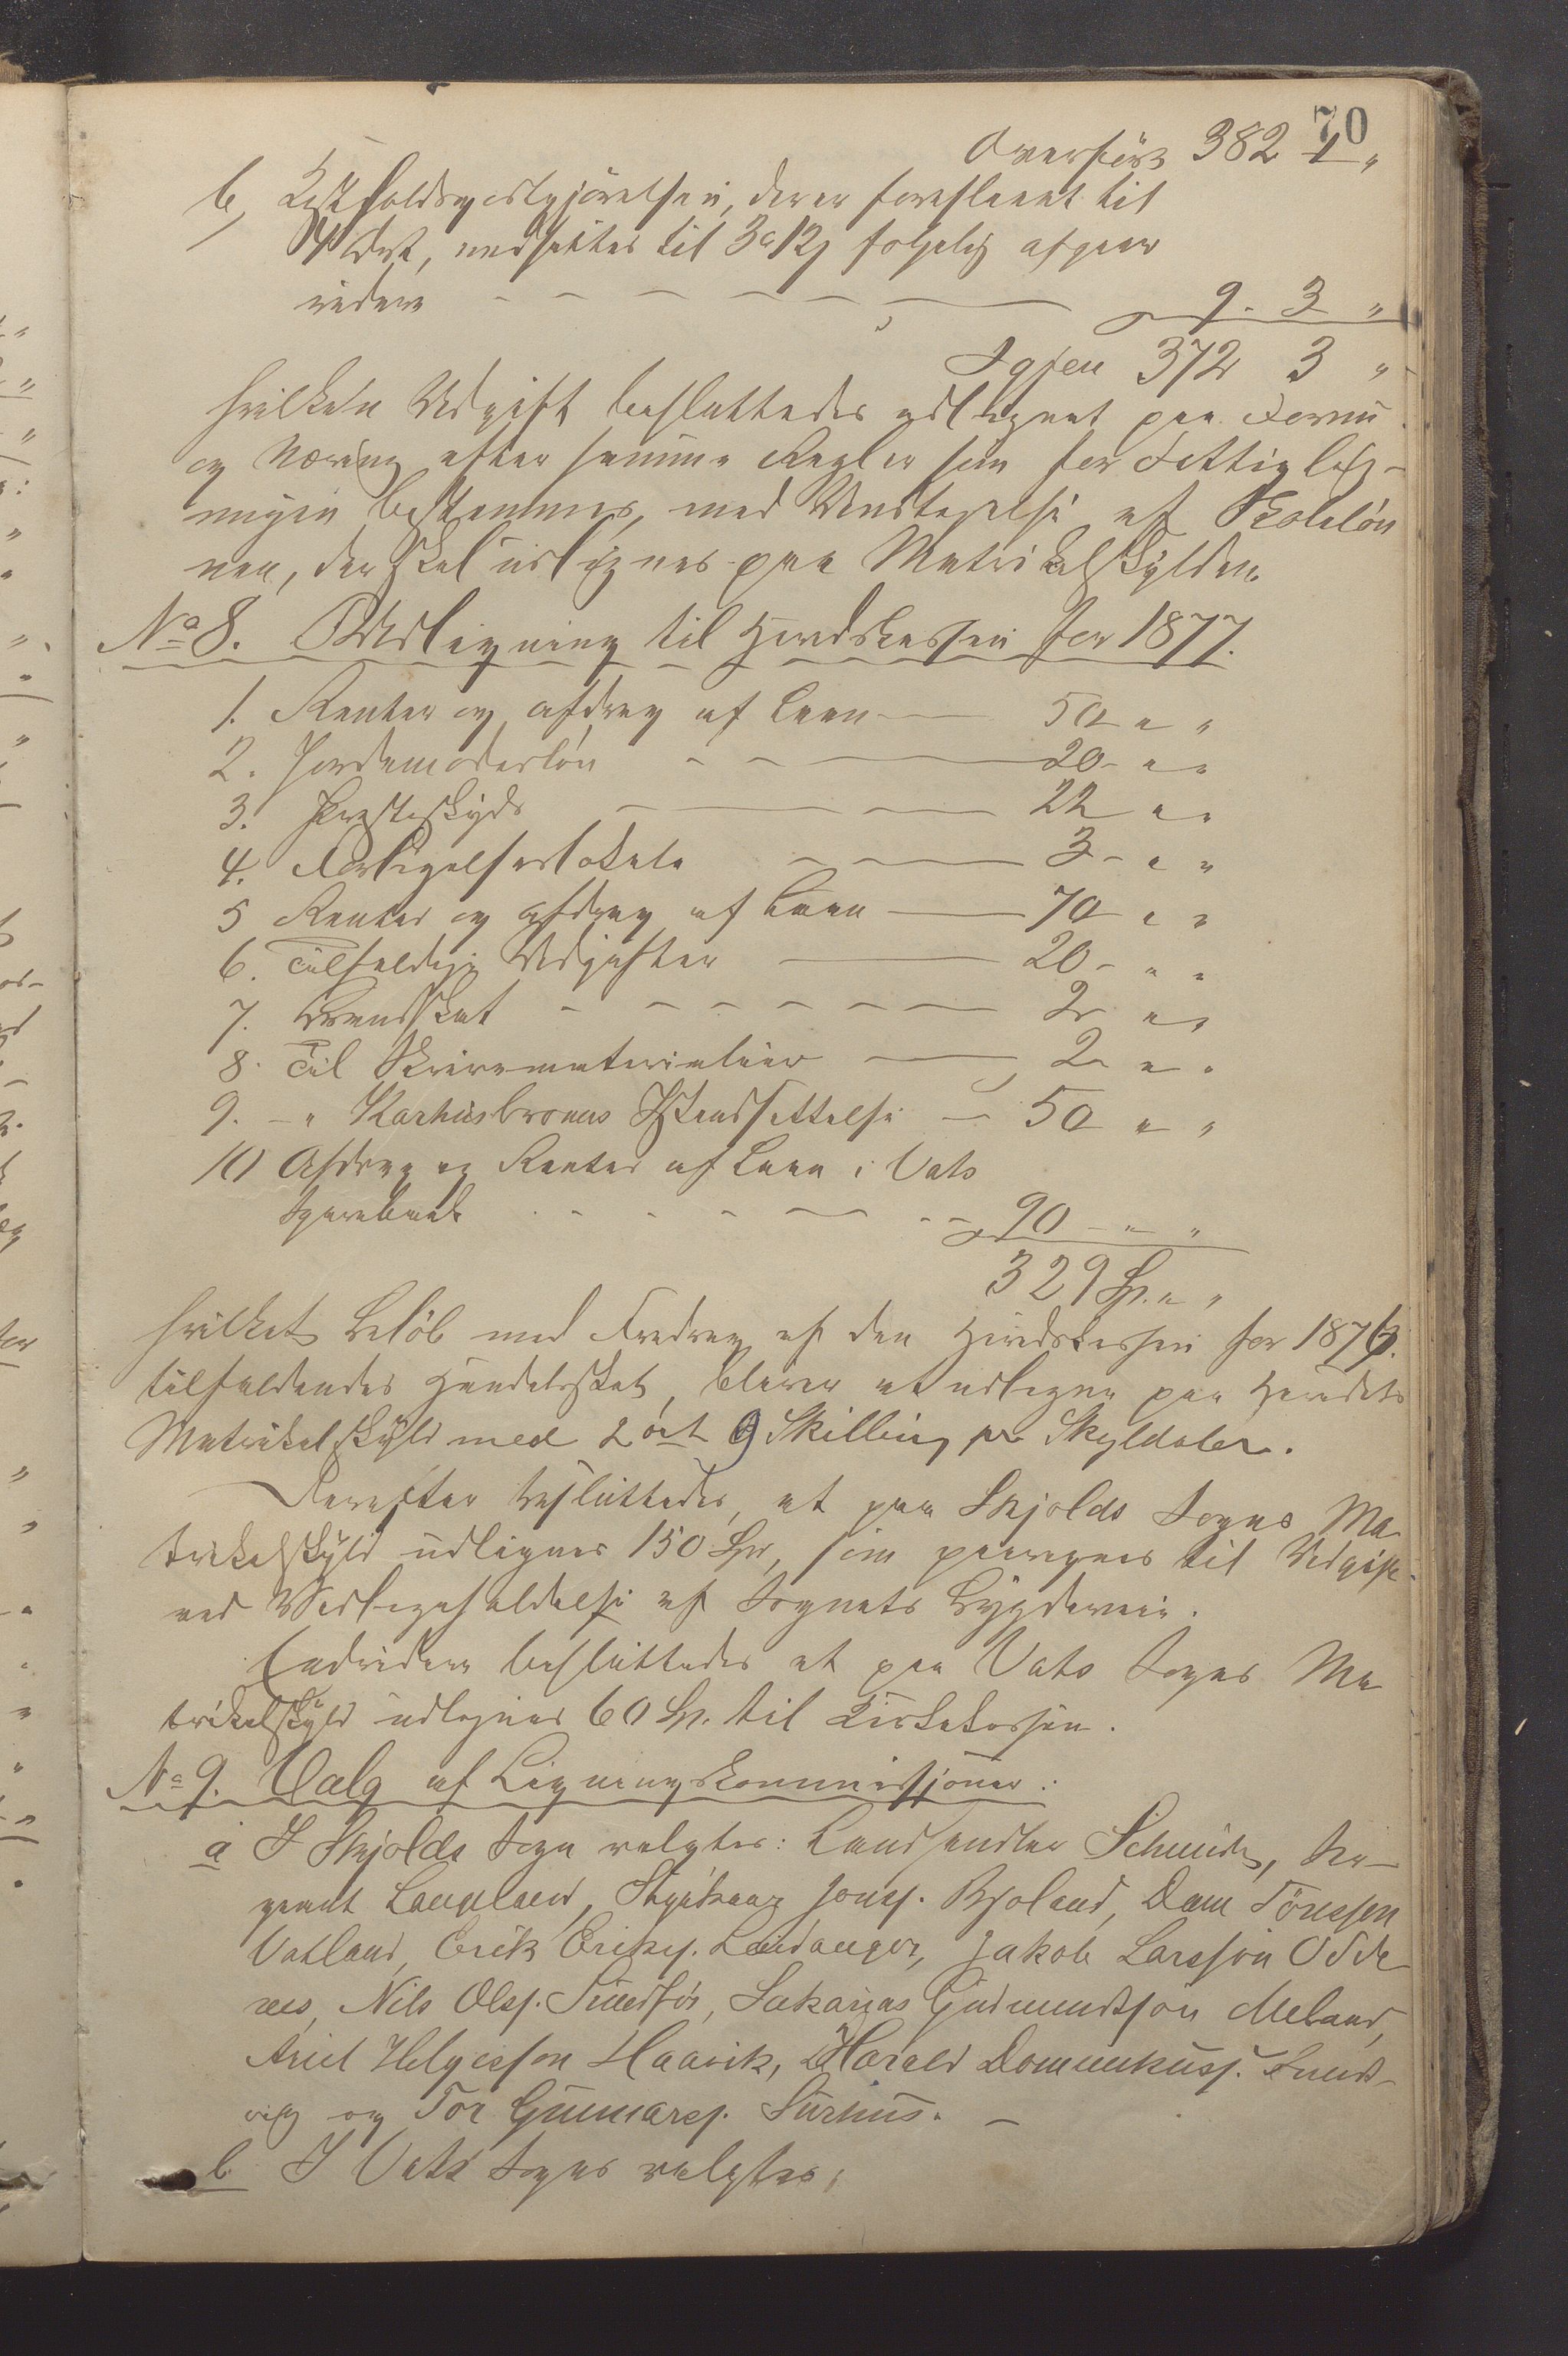 70
Overført 382 1 "
b, Kostholdsgodtgjørelsen, der er foreslaaet til
4 Ort, nedsættes til 3 o 12 s følgelig afgaar
videre - - - - - 9. 3 "
Igjen 372 3 "
hvilken Udgift besluttedes udlignet paa Formue
og Næring efter samme Regler som for Fattiglig-
ningen bestemmes, med Undtagelse af Skoleløn
nen, der skal udlignes paa Matrikelskylden.
No 8. Udligning til Herredskassen for 1877.
1. Renter og afdrag af Laan - 50 " "
2. Jordemoderløn - - - 20 - " "
3. Presteskyds - - 22 " "
4. Forligelseslokale - - 3 - " "
5 Renter og afdrag af Laan - 70 " "
6. Tilfeldige Udgifter - 20 - " "
7. Brandskat - - - - - - 2 " "
8. Til Skrivematerialier - 2 " "
9. - " Karhusbroens Istandsettelse - 50 " "
10 Afdrag og Renter af Laan i Vats
Sparebank - - - - - 90 - " "
329 Sp. " "
hvilket Beløb med Fradrag af den Herredskassen for 1876.
tilfaldendes Handelsskat, bliver at udligne paa Herredets
Matrikelskyld med 2 ort 9 Skilling pr Skyldaler.
Derefter besluttedes, at paa Skjolds Sogns Ma-
trikelskyld udlignes 150 Spd, som paaregnes til Udgift
ved Vedligeholdelse af Sognets Bygdeveie.
Endvidere besluttedes at paa Vats Sogns Ma
trikelskyld udlignes 60 Sp. til Kirkekassen.
No 9. Valg af Ligningskommissjoner:
a I Skjolds Sogn valgtes: Landhandler Schmidt, Ser-
geant Langeland, Jonss. Bjoland, Dam Tönessen
Vatland, Erik Eriks. Leidanger, Jakob Larsson Odde
nes, Nils Ols. Sundfør, Sakarias Gudmundsson Meland,
Ariel Helgesson Haavik, Harald Dommikuss. Sund-
vig og Tor Gunnars. Surhus. -
b. I Vats Sogns valgtes: